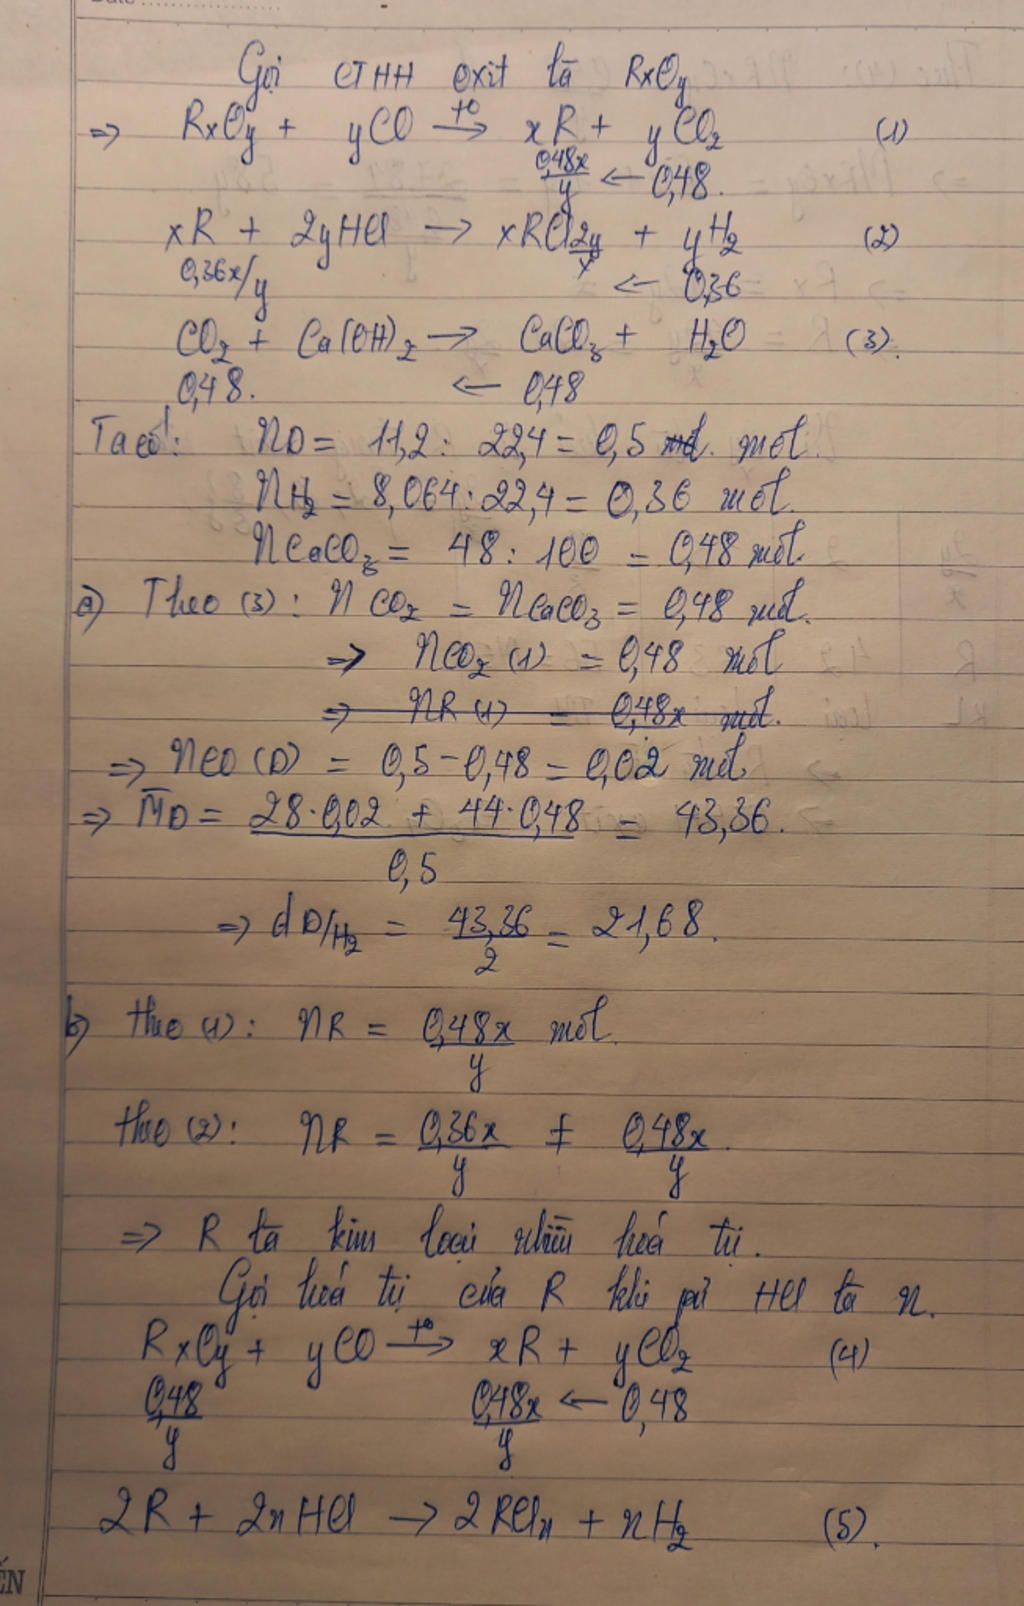 Gọi CTHH oxit là RxOy
=> RxOy + yCO -t°-> xR + yCO2 (1)
0,48x/y <- 0,48.
xR + 2yHCl -> xRCl2y/x + yH2 (2)
0,36x/y <- 0,36
CO2 + Ca(OH)2 -> CaCO3 + H2O (3).
0,48. <- 0,48
Ta có: nD = 11,2 : 22,4 = 0,5 mol. mol.
nH2 = 8,064 : 22,4 = 0,36 mol.
nCaCO3 = 48 : 100 = 0,48 mol.
a) Theo (3) : nCO2 = nCaCO3 = 0,48 mol.
=> nCO2 (1) = 0,48 mol
=> nR (1) = 0,48x mol.
=> nCO (D) = 0,5 - 0,48 = 0,02 mol
=> M̄D = (28·0,02 + 44·0,48)/0,5 = 43,36.
=> dD/H2 = 43,36/2 = 21,68.
b) theo (1) : nR = 0,48x/y mol.
theo (2) : nR = 0,36x/y ≠ 0,48x/y.
=> R là kim loại nhiều hoá trị.
Gọi hoá trị của R khi pứ HCl là n.
RxOy + yCO -t°-> xR + yCO2 (4)
0,48/y 0,48x/y <- 0,48
2R + 2nHCl -> 2RCln + nH2 (5).
ẾN